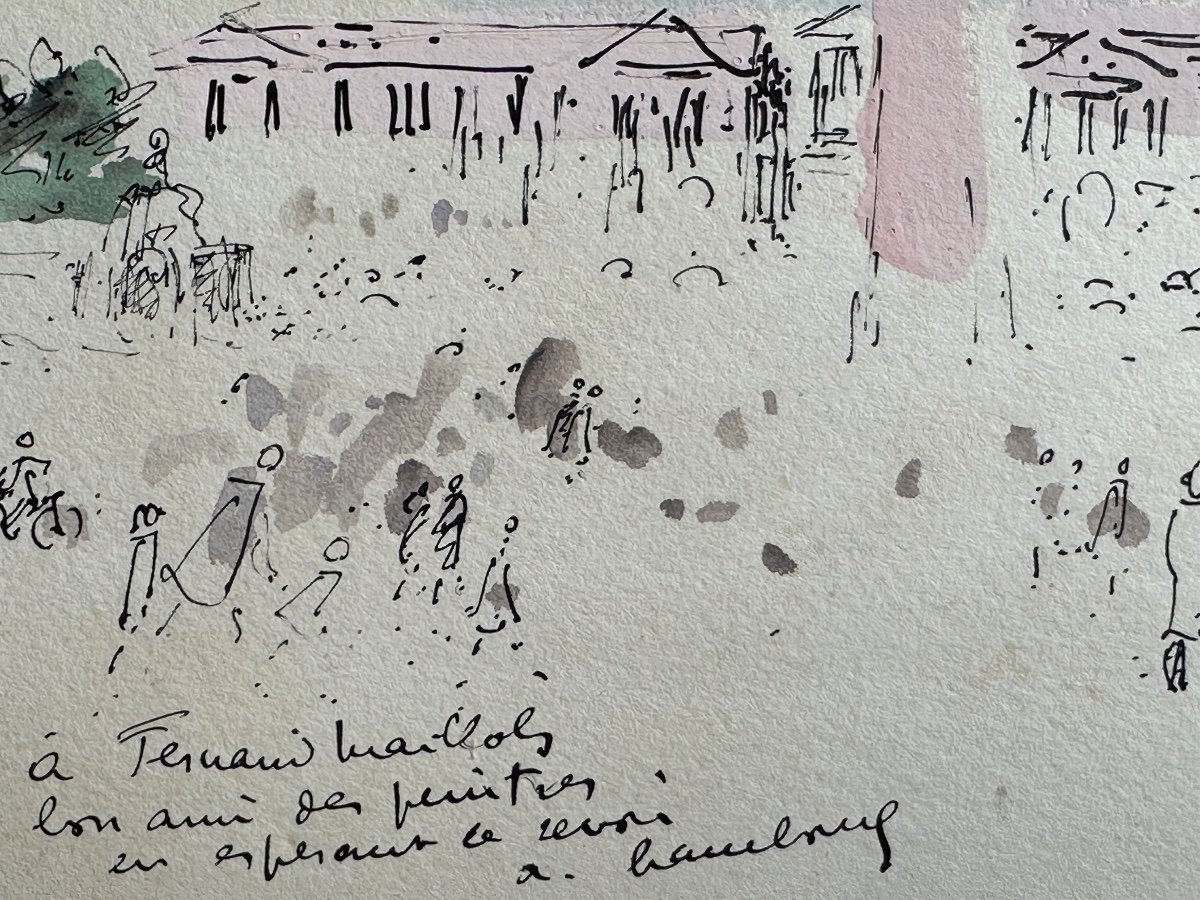 à Fernand Maillols
bon ami des peintres
en espérant le revoir
a. hambourg